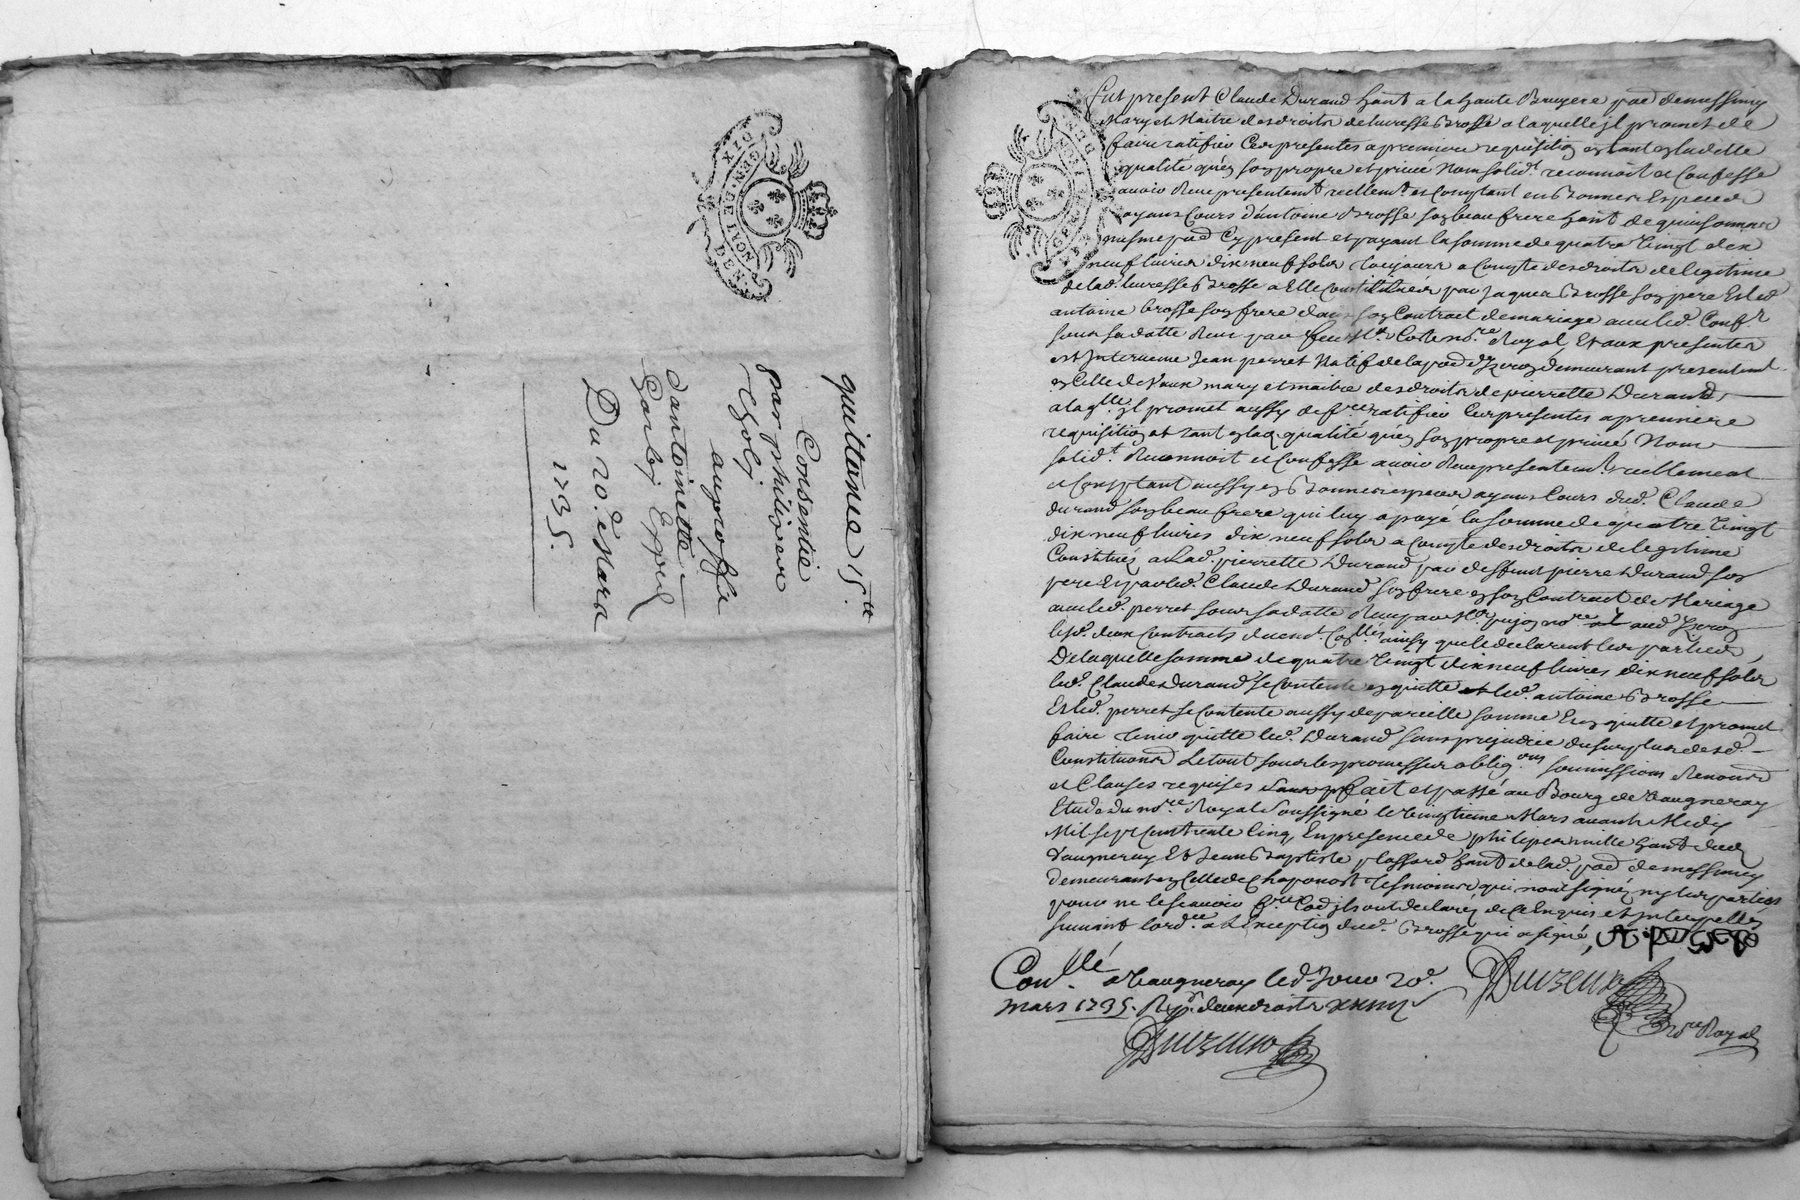 GEN. DE LYON
DIX DEN.
quittance 15.tt
Consentie
par philiper
Goly
au proffit
d'antoinette
Garby Epped
Du 20.e Mars
1735.
Fut present Claude Durand hant a la haute Bruyere pad de messimy
Mary et Maitre des droits de Brosse a laquelle jl promet de
faire ratiffier Ces presentes a premiere requisition et tant en lad.e
qualité qu'en son propre et privé Nom solid.t reconnoit et Confesse
avoir Reçu presentem.t reellem.t et Comptant en Bonnes Especes
ayans Cours d'antoine Brosse son beau frere hant de
mesme pad Cy present et payant la somme de quatre vingt dix
neuf livres dix neuf sols toujours a Compte des droits de legitime
de lad. Brosse a Elle Constitués par Jaques Brosse son pere Et led
antoine brosse son frere dans son Contract de mariage avec led. Conf.t
sous sa datte Reçu par feu M.e no.re Royal, Et aux presentes
est Intervenu Jean perret Natif de la pad d'Yzeron demeurant presentem.t
en Celle de Vaux mary et maitre des droits de pierrette Durand
a laq.lle jl promet aussy de f.re ratiffier Ces presentes a premiere
requisition et tant en lad qualité qu'en son propre et privé Nom
solid.t Reconnoit et Confesse avoir Reçu presentem.t reellement
et Comptant aussy en Bonnes especes ayans Cours dud. Claude
durand son beau frere qui luy a payé la somme de quatre vingt
dix neuf livres dix neuf sols a Compte des droits de legitime
Constitués a Lad. pierrette Durand par deffunt pierre Durand son
pere Et par led. Claude Durand son frere en son Contract de Mariage
avec led. perret sous sa datte Reçu par M.e no.re aud Yzeron
lesd. deux Contracts duem.t Co.llés ainsy que le declarent les parties,
De laquelle somme de quatre vingt dix neuf livres dix neuf sols
led. Claude Durand se Contente en quitte led. antoine Brosse
Et led. perret se Contente aussy de pareille somme En quitte et promet
faire tenir quitte led. Durand sans prejudice du surplus desd.
Constitutions Le tout sous les promesses oblig.ons soumissions Renonc.ns
et Clauses requises fait et passé au Bourg de Vaugneray
Etude du no.re Royal Soussigné le vingtieme Mars avant Midy
Mil sept Cent trente Cinq, En presence de philiper mille hant dud
Vaugneray Et Jean Baptiste plassard hant de lad. pad de messimy
demeurant en Celle de Chaponost tesmoins qui n'ont signés ny les parties
pour ne le scavoir f.re Co d jls ont declarés de Ce Enquis et Interpellés
suivant l'ord.ce a l'Exception dud. Brosse qui a signé,
Con.llé a Vaugneray led. Jour 20.e
mars 1735. Reçu deux droits
no.re Royal